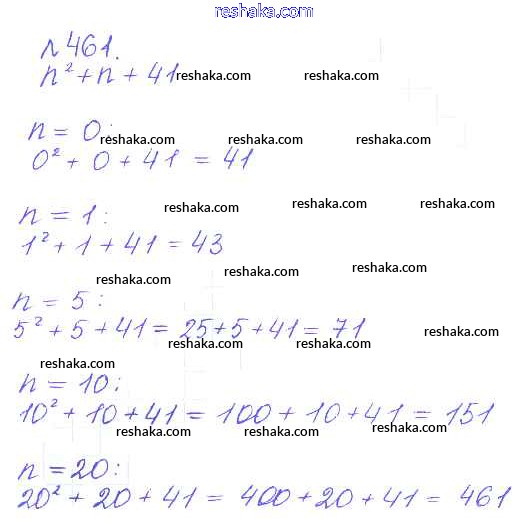 reshaka.com
№461.
n² + n + 41 reshaka.com reshaka.com
n = 0: reshaka.com reshaka.com reshaka.com
0² + 0 + 41 = 41
n = 1: reshaka.com reshaka.com reshaka.com
1² + 1 + 41 = 43
reshaka.com reshaka.com reshaka.com
n = 5:
5² + 5 + 41 = 25 + 5 + 41 = 71 reshaka.com
reshaka.com reshaka.com reshaka.com
n = 10:
10² + 10 + 41 = 100 + 10 + 41 = 151
reshaka.com reshaka.com reshaka.com
n = 20:
20² + 20 + 41 = 400 + 20 + 41 = 461